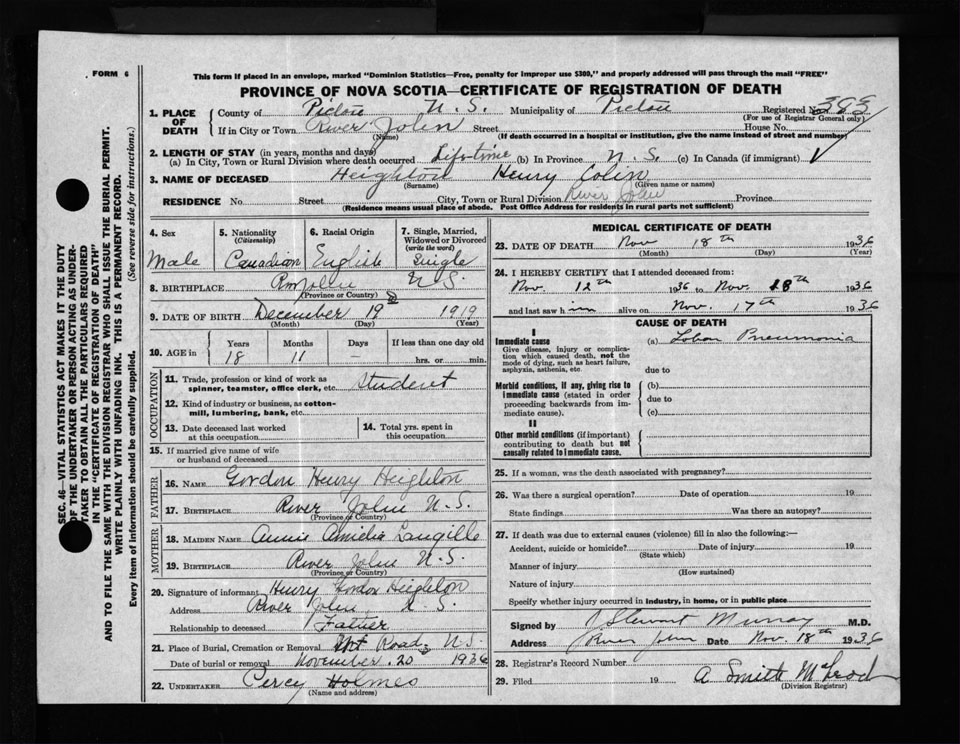 FORM 6
This form if placed in an envelope, marked "Dominion Statistics—Free, penalty for improper use $300," and properly addressed will pass through the mail "FREE"
PROVINCE OF NOVA SCOTIA—CERTIFICATE OF REGISTRATION OF DEATH
1. PLACE OF DEATH County of Pictou N. S. Municipality of Pictou Registered No. 383
(For use of Registrar General only)
If in City or Town River John Street House No.
(Name) (If death occurred in a hospital or institution, give the name instead of street and number)
2. LENGTH OF STAY (in years, months and days)
(a) In City, Town or Rural Division where death occurred Life-time (b) In Province N. S. (c) In Canada (if immigrant)
3. NAME OF DECEASED Heighton Henry Colin
(Surname) (Given name or names)
RESIDENCE No. Street City, Town or Rural Division River John Province
(Residence means usual place of abode. Post Office Address for residents in rural parts not sufficient)
4. Sex 5. Nationality (Citizenship) 6. Racial Origin 7. Single, Married, Widowed or Divorced (write the word)
Male Canadian English Single
8. BIRTHPLACE N.S.
(Province or Country)
9. DATE OF BIRTH December 19 1919
(Month) (Day) (Year)
10. AGE in Years Months Days If less than one day old
18 11 — hrs. or min.
OCCUPATION
11. Trade, profession or kind of work as spinner, teamster, office clerk, etc. Student
12. Kind of industry or business, as cotton-mill, lumbering, bank, etc.
13. Date deceased last worked at this occupation 14. Total yrs. spent in this occupation
15. If married give name of wife or husband of deceased
FATHER
16. NAME Gordon Henry Heighton
17. BIRTHPLACE River John N.S.
(Province or Country)
MOTHER
18. MAIDEN NAME Annie Amelia Langille
19. BIRTHPLACE River John N.S.
(Province or Country)
20. Signature of informant Henry Gordon Heighton
Address River John, N. S.
Relationship to deceased Father
21. Place of Burial, Cremation or Removal Road N.S.
Date of burial or removal November. 20 1936
22. UNDERTAKER Percy Holmes
(Name and address)
MEDICAL CERTIFICATE OF DEATH
23. DATE OF DEATH Nov 18th 1936
(Month) (Day) (Year)
24. I HEREBY CERTIFY that I attended deceased from:
Nov. 12th 1936 to Nov. 18th 1936
and last saw him alive on Nov. 17th 1936
CAUSE OF DEATH
I
Immediate cause (a) Lobar Pneumonia
Give disease, injury or complication which caused death, not the mode of dying, such as heart failure, asphyxia, asthenia, etc.
due to
Morbid conditions, if any, giving rise to immediate cause (stated in order proceeding backwards from immediate cause).
(b)
due to
(c)
II
Other morbid conditions (if important) contributing to death but not causally related to immediate cause.
25. If a woman, was the death associated with pregnancy?
26. Was there a surgical operation? Date of operation 19
State findings Was there an autopsy?
27. If death was due to external causes (violence) fill in also the following:—
Accident, suicide or homicide? Date of injury 19
(State which)
Manner of injury
(How sustained)
Nature of injury
Specify whether injury occurred in industry, in home, or in public place
Signed by J Stewart Murray M.D.
Address River John Date Nov. 18th 1936
28. Registrar's Record Number
29. Filed 19 A Smith McLeod
(Division Registrar)
SEC. 46—VITAL STATISTICS ACT MAKES IT THE DUTY
OF THE UNDERTAKER OR PERSON ACTING AS UNDER-
TAKER TO OBTAIN ALL THE PARTICULARS REQUIRED
IN THE "CERTIFICATE OF REGISTRATION OF DEATH"
AND TO FILE THE SAME WITH THE DIVISION REGISTRAR WHO SHALL ISSUE THE BURIAL PERMIT.
WRITE PLAINLY WITH UNFADING INK. THIS IS A PERMANENT RECORD.
Every item of information should be carefully supplied. (See reverse side for instructions.)